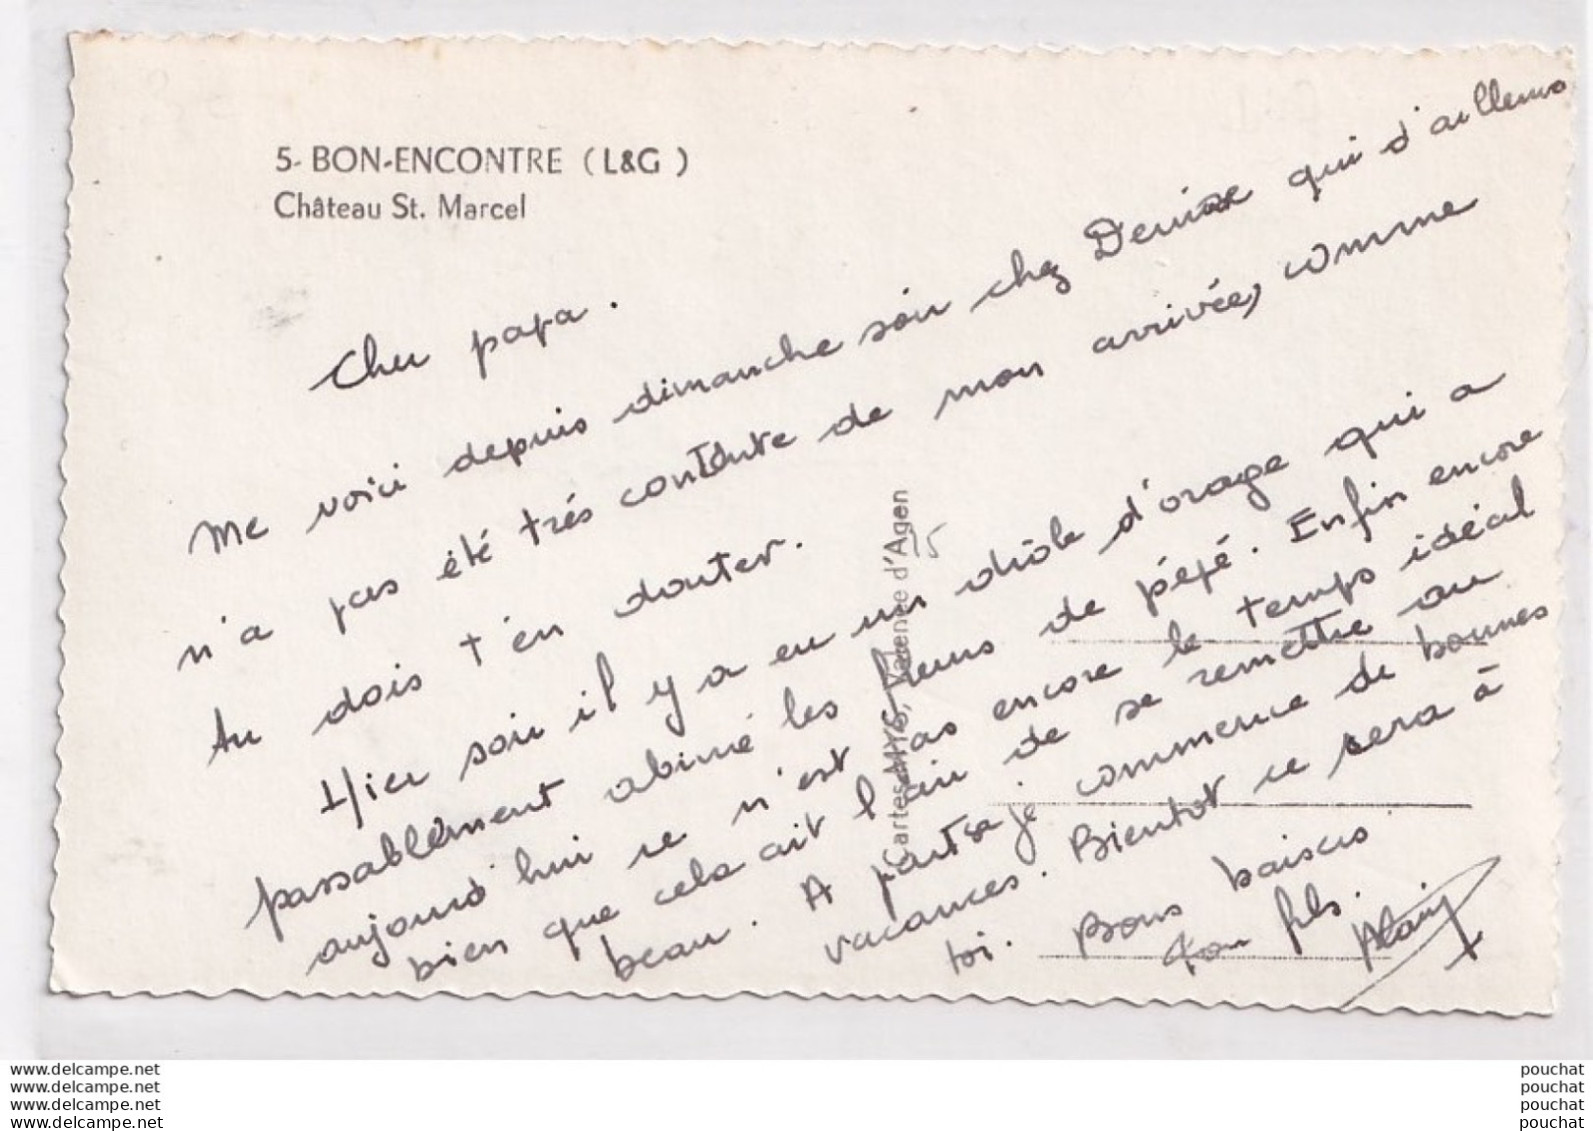 5- BON-ENCONTRE (L&G)
Château St. Marcel
Cher papa.
Me voici depuis dimanche soir chez Denise qui d'ailleurs
n'a pas été trés contente de mon arrivée, comme
tu dois t'en douter.
Hier soir il y a eu un drôle d'orage qui a
passablement abimé les de pépé. Enfin encore
aujourd'hui ce n'est pas encore le temps idéal
bien que cela ait l'air de se remettre au
beau. A part ça je commence de bonnes
vacances. Bientot ce sera à
toi. Bons baisers.
Ton fils.
Alain
Cartes Valence d'Agen
15
www.delcampe.net
www.delcampe.net
www.delcampe.net
www.delcampe.net
pouchat
pouchat
pouchat
pouchat